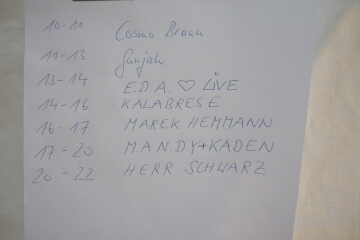 10-11 Cosmo Braun
11-13 Sunjah
13-14 E.D.A. ♡ LiVE
14-16 KALABRESE
16-17 MAREK HEMMANN
17.-20 M.A.N.D.Y+KADEN
20.-22 HERR SCHWARZ